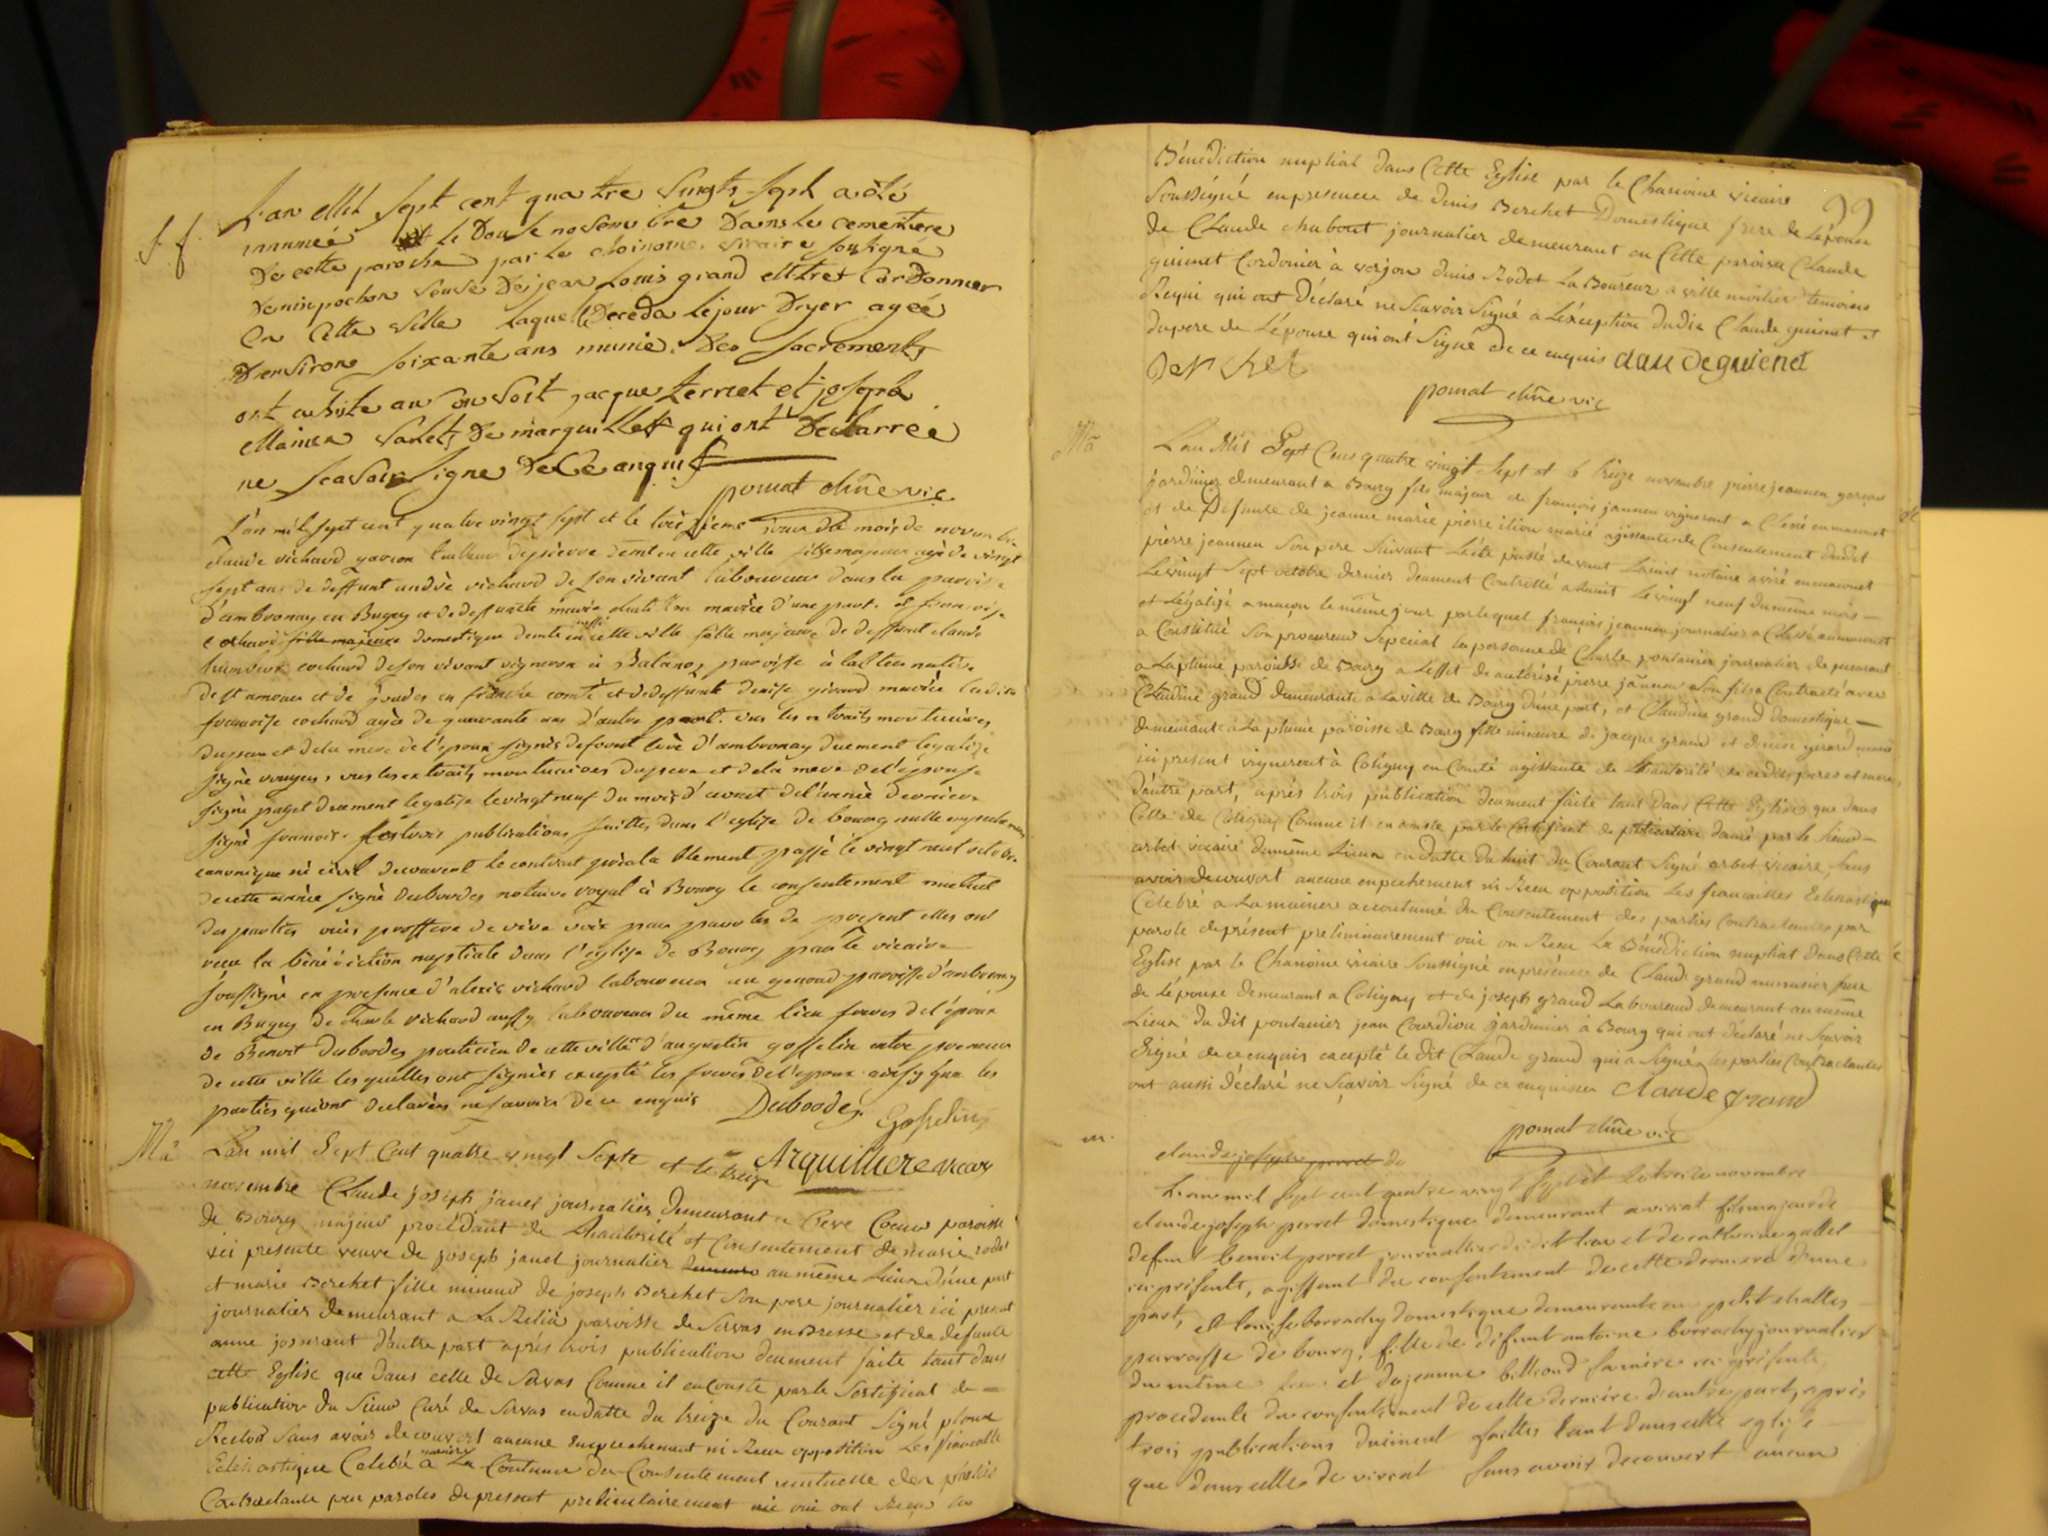 L'an Mil sept cent quatre vingts sept a été
inhumée le Douse novembre Dans le cemetiere
De cette paroisse par le choinoine vicaire soussigné
Denise pochon veuve De jean Louis grand Mtre Cordonnier
En Cette ville laquelle Deceda le jour D'yer agée
D'environ soixante ans munie Des sacrements
ont assisté au convoit jacque terriet et joseph
valets De marguillet qui ont Declarrée
ne scavoir signe De Ce anquis
pomat chne vic
L'an mil sept cent quatre vingt sept et le treizieme jour du mois de novembre
claude vichard garson tailleur de pierre demt en cette ville fils majeur agé de vingt
sept ans de deffunt andré vichard de son vivant laboureur dans la paroisse
d'ambronay en Bugey et de deffunte marie mariée d'une part et françoise
cochard fille majeure domestique demte aussi en cette ville fille majeure de deffunt claude
cochard de son vivant vigneron à paroisse à
de st amour et de en franche comté et de deffunte denise girard mariée ladite
francoise cochard agée de quarante ans d'autre part. vus les extraits mortuaires
du pere et de la mere de l'epoux signés d'ambronay duement legalisé
signé vus les extraits mortuaires du pere et de la mere de l'épouse
signé paget duement legalisé le vingt neuf du mois d'avril de l'année derniere
signé francois les trois publications faittes dans l'eglise de bourg nulle empechement
canonique ni civil decouvert le contrat préalablement passé le vingt neuf octobre
de cette année signé Desbordes notaire royal à Bourg le consentement mutuel
des parties ouies proffere de vive voix par paroles de present elles ont
receu la bénédiction nuptiale dans l'eglise de Bourg par le vicaire
soussigné en presence d'alexis vichard laboureur au genoud paroisse d'ambronay
en Bugey de charle vichard aussy laboureur du même lieu freres de l'époux
de Benoit Desboodes praticien de cette ville et d'augustin gosselin
de cette ville lesquelles ont signées excepté les freres de l'epoux ainsy que les
parties qui ont declarées ne savoir de ce enquis Desboodes Gosselin
Arquilliere vicar
Ma L'an mil Sept Cent quatre vingt Septe et le treize
novembre Claude joseph janet journalier Demeurant a Creve Coeur paroisse
de Bourg majeur procédant de l'hautorité et Consentement de marie rodet
ici presente veuve de joseph janet journalier demeurt au même Lieux d'une part
et marie Berchet fille mineur de joseph Berchet son pere journalier ici present
journalier demeurant a La paroisse de Servas en Bresse et de defunte
anne josserant d'autre part après trois publication deument faite tant dans
cette Eglise que dans celle de Servas Comme il en conste par le Sertifical de
publication du Sieur Curé de Servas en datte du treize du Courant Signé
Recteur Sans avoir decouvert aucune empechement ni Receu opposition Les fiancialle
Ecleisastique Celebré a La maniere Coutume du Consentement mutuelle des parties
Contractante par paroles de present preliminairement ouie ont Receus la
Bénédiction nuptial dans Cette Eglise par le Chanoine vicaire
Soussigné en presence de Denis Berchet Domestique frere de L'épouse
de Claude chabout journalier demeurant en Cette paroisse Claude
guinet Cordonier à verjon denis Rodet Laboureur a ville temoins
Requi qui ont Déclaré ne Scavoir Signé a L'exception dudit Claude guinet et
du pere de L'épouse qui ont Signé de ce enquis claude De guienet
Berchet
pomat chne vic
Ma L'an Mil Sept Cens quatre vingt Sept et le treize novembre pierre jeanneu garson
jardinier demeurant a Bourg fils majeur de françois janneu vigneront a Clessé en maconnet
et de Defunte de jeanne marie pierre mariés agissant de Consentement dudit
pierre jeanneu son pere Suivant L'acte passé devant notaire a en maconnet
Le vingt Sept octobre dernier deument Controllé a Le vingt neuf du même mois
et Légalisé a macon le même jour par lequel françois jeanneu journalier a Clessé en maconnet
a Constitué Son procureur Special la personne de Charle poutanier journalier demeurant
a La plume paroisse de Bourg a L'effet de autorisé pierre janneu Son fils a Contracté avec
Claudine grand demeurante a La ville de Bourg d'une part, et Claudine grand domestique
demeurant a La plume paroisse de Bourg fille mineure de jacque grand et denise gerard mariés
ici present vigneront à Coligny en Comté agissante de L'hautorité de ces dits peres et mere
d'autre part, après trois publication deument faite tant dans Cette Eglise que dans
Celle de Coligny Comme il en conste par le Certificat de publication donné par le Sieur
arbet vicaire du même Lieux en datte du huit du Courant Signé arbet vicaire, Sans
avoir decouvert aucune empechement ni Receu opposition Les fiancailles Eclesiastique
Célébré a La maniere accoutumé du Consentement des parties Contractantes par
parole de présent preliminairement ouie on Receu La Bénédiction nuptial dans Cette
Eglise par le Chanoine vicaire Soussigné en présence de Claude grand menusier frere
de L'épouse demeurant a Coligny et de joseph grand Laboureur demeurant au même
Lieux du dit poutanier jean Courdiou jardinier à Bourg qui ont déclaré ne Scavoir
Signé de ce enquis excepté le dit Claude grand qui a Signé les parties Contractantes
ont aussi déclaré ne Scavoir Signé de ce enquises Claude grand
pomat chne vic
m. claude joseph perret de
L'an mil sept cent quatre vingt sept et le treize novembre
claude joseph perret domestique demeurant a viriat fils majeur de
defunt benoit perret journallier dudit lieu et de catherine gallet
ici présente, agissant du consentement de cette derniere d'une
part, et louise borrachy domestique demeurante en petit challes
parroisse de bourg, fille de défunt antoine borrachy journalier
du même lieu et de jeanne billioud sa mère ici présente
procedante du consentement de cette derniére d'autre part, après
trois publications duëment faittes tant dans cette eglise
que dans celle de viriat sans avoir decouvert aucun